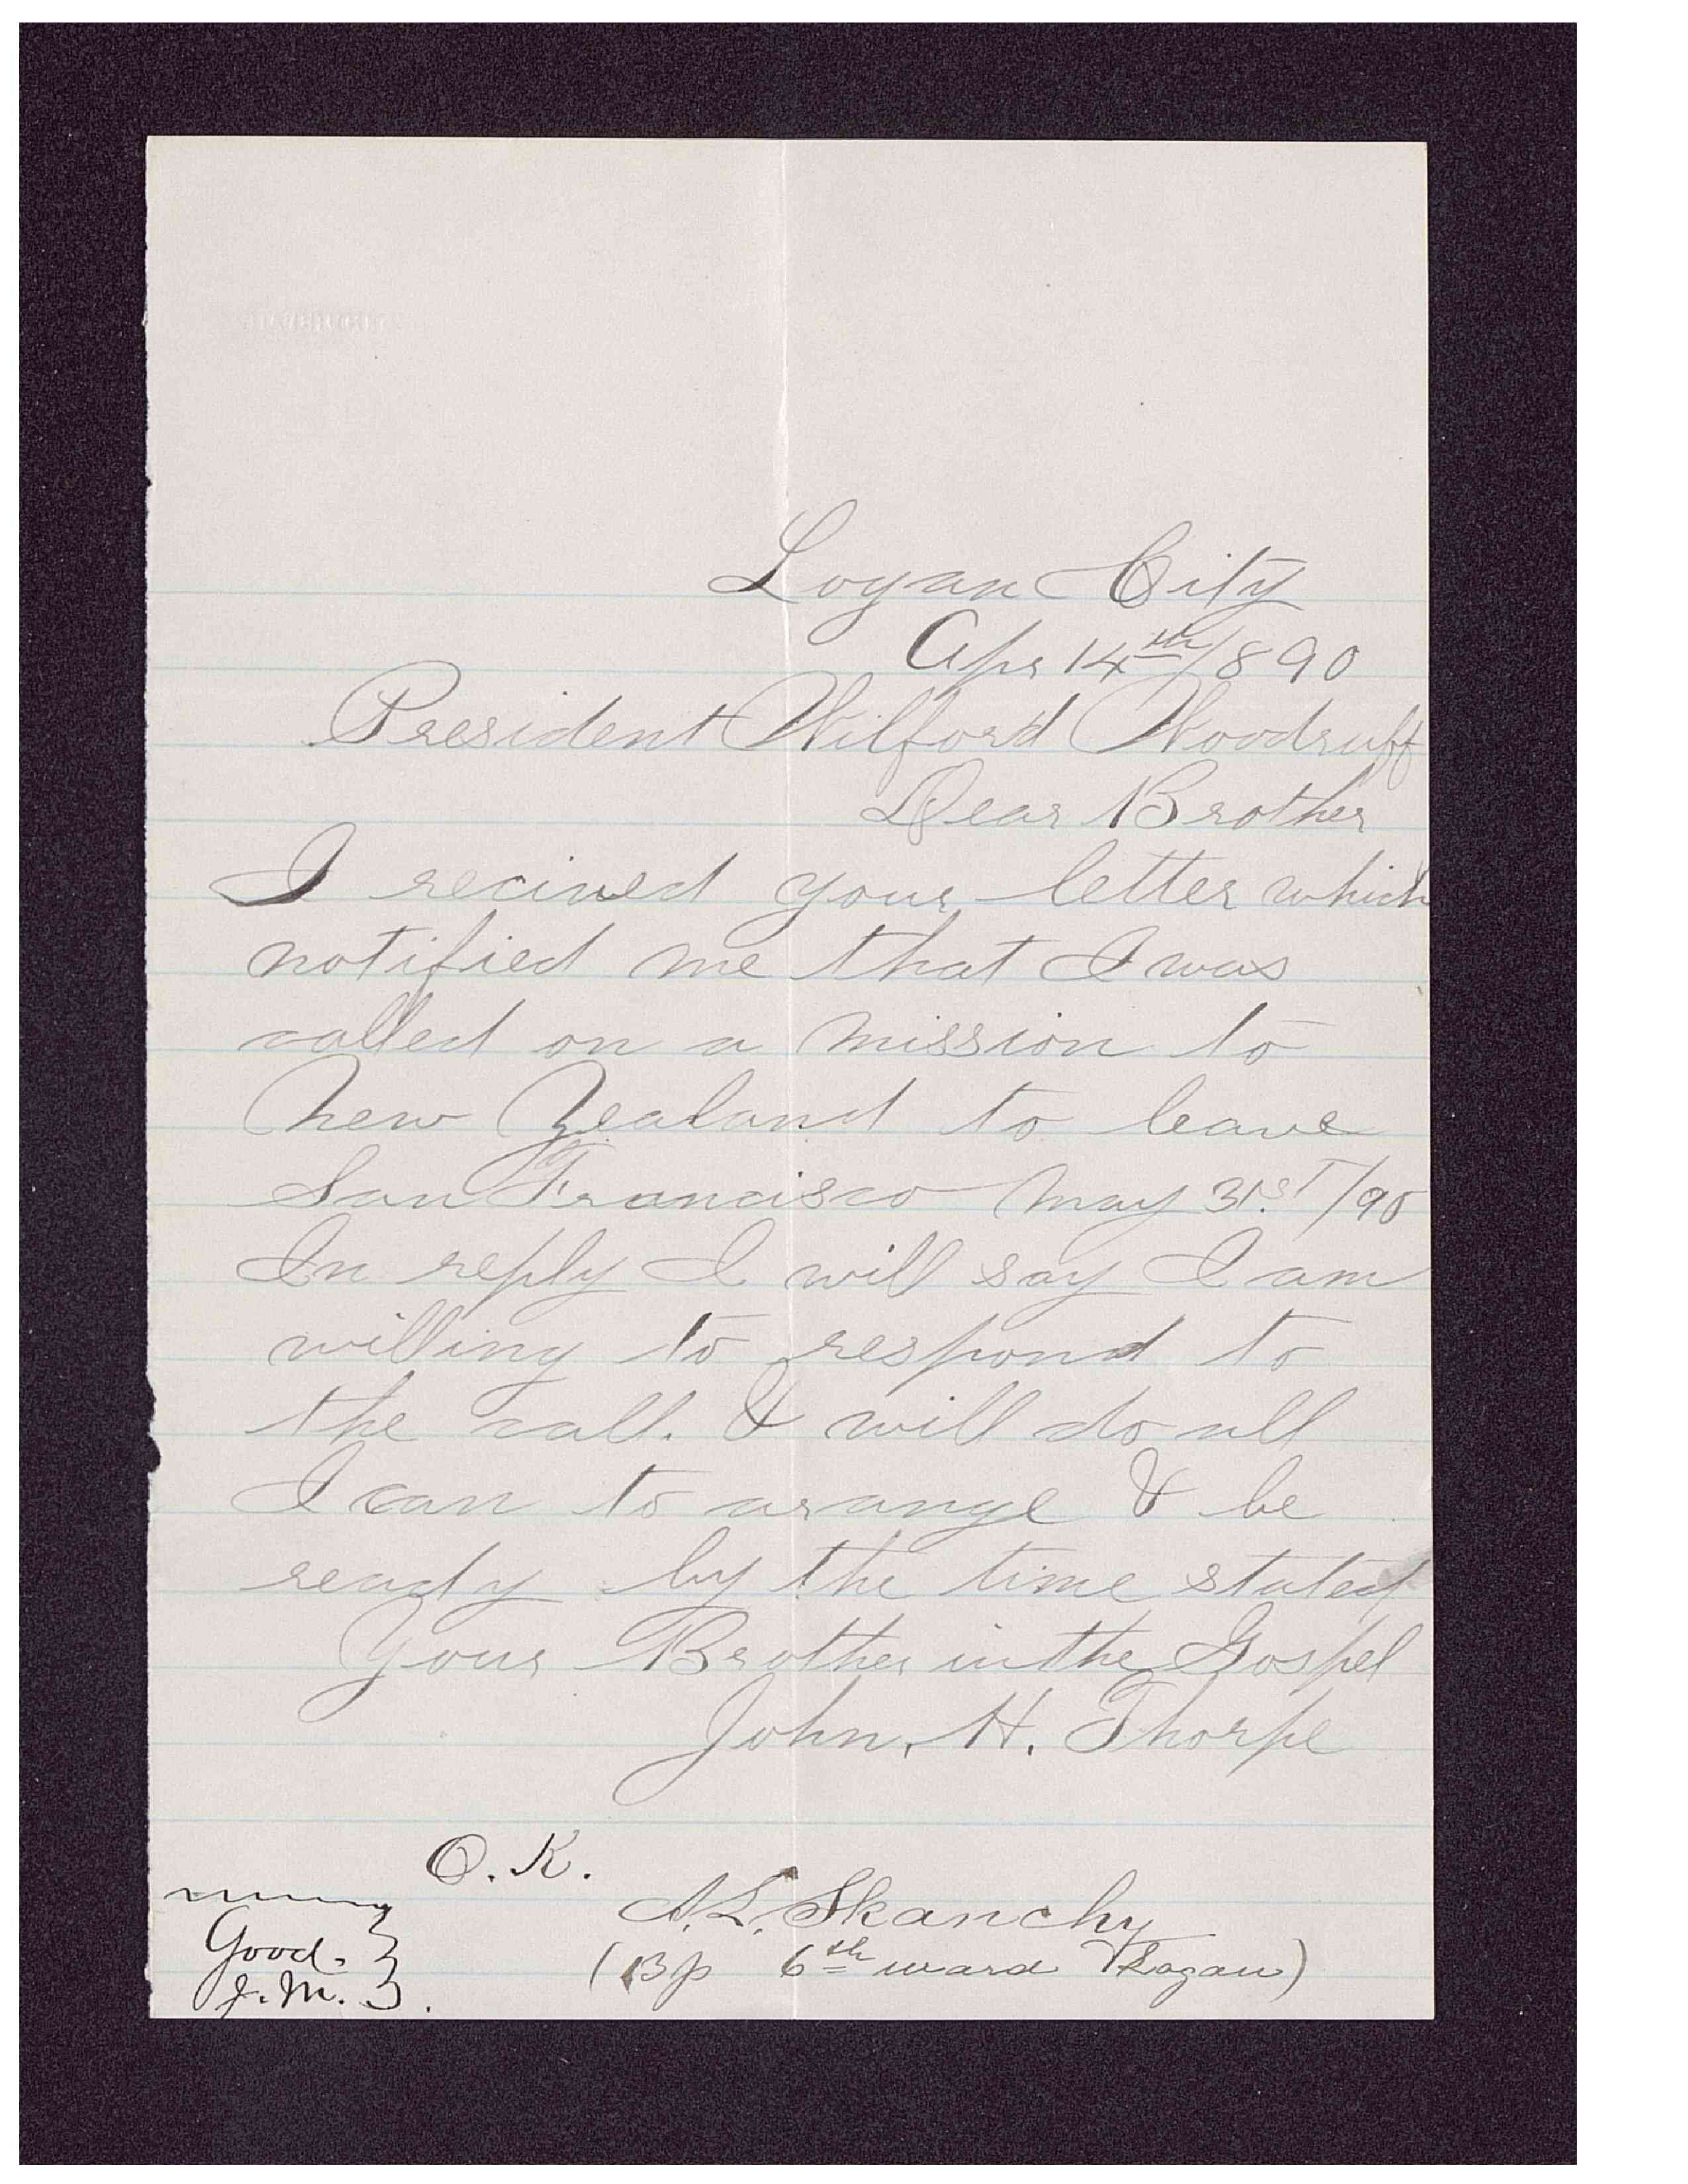 Logan City
Apr 14th/890
President Wilford Woodruff
Dear Brother
I recived your letter which
notified me that I was
called on a mission to
New Zealand to leave
San Francisco May 31st/90
In reply I will say I am
willing to respond to
the call. & will do all
I can to arange & be
ready by the time stated
Your Brother in the Gospel
John. H. Thorpe
O.K.
A.L. Skanchy
(Bp 6th ward Logan)
Good.
J.M.